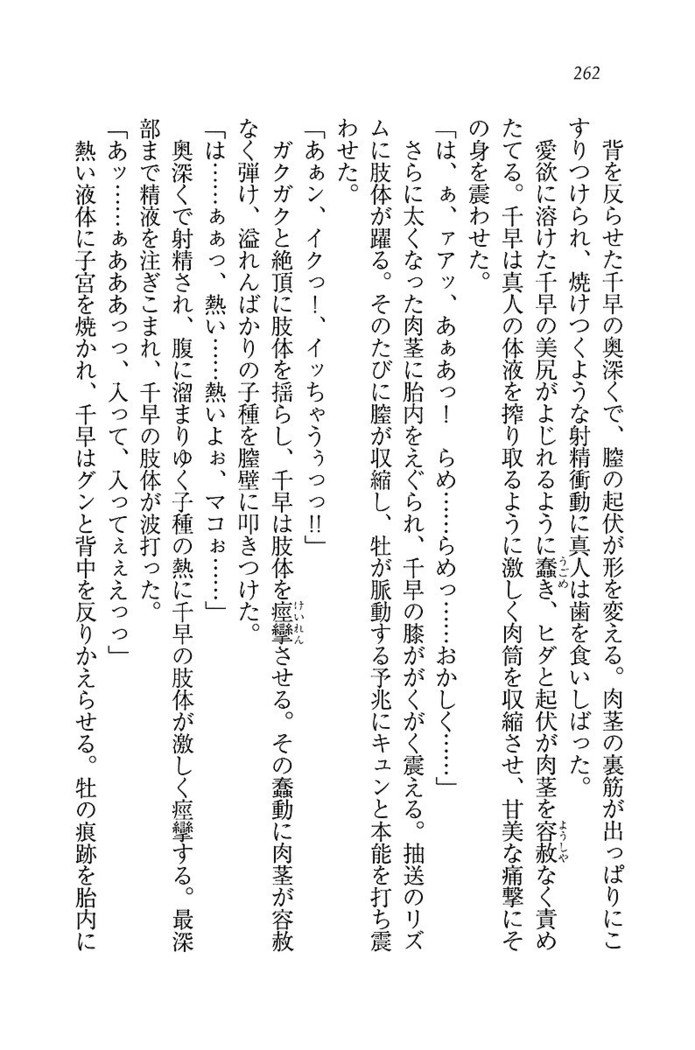 262
背を反らせた千早の奥深くで、膣の起伏が形を変える。肉茎の裏筋が出っぱりにこ
すりつけられ、焼けつくような射精衝動に真人は歯を食いしばった。
愛欲に溶けた千早の美尻がよじれるように蠢き、ヒダと起伏が肉茎を容赦なく責め
たてる。千早は真人の体液を搾り取るように激しく肉筒を収縮させ、甘美な痛撃にそ
の身を震わせた。
「は、ぁ、ァアッ、あぁあっ！　らめ……らめっ……おかしく……」
さらに太くなった肉茎に胎内をえぐられ、千早の膝ががくがく震える。抽送のリズ
ムに肢体が躍る。そのたびに膣が収縮し、牡が脈動する予兆にキュンと本能を打ち震
わせた。
「あぁン、イクっ！、イッちゃうぅっっ!!」
ガクガクと絶頂に肢体を揺らし、千早は肢体を痙攣させる。その蠢動に肉茎が容赦
なく弾け、溢れんばかりの子種を膣壁に叩きつけた。
「は……ぁぁっ、熱い……熱いよぉ、マコぉ……」
奥深くで射精され、腹に溜まりゆく子種の熱に千早の肢体が激しく痙攣する。最深
部まで精液を注ぎこまれ、千早の肢体が波打った。
「あッ……ぁあああっっ、入って、入ってぇえぇえっっ」
熱い液体に子宮を焼かれ、千早はグンと背中を反りかえらせる。牡の痕跡を胎内に